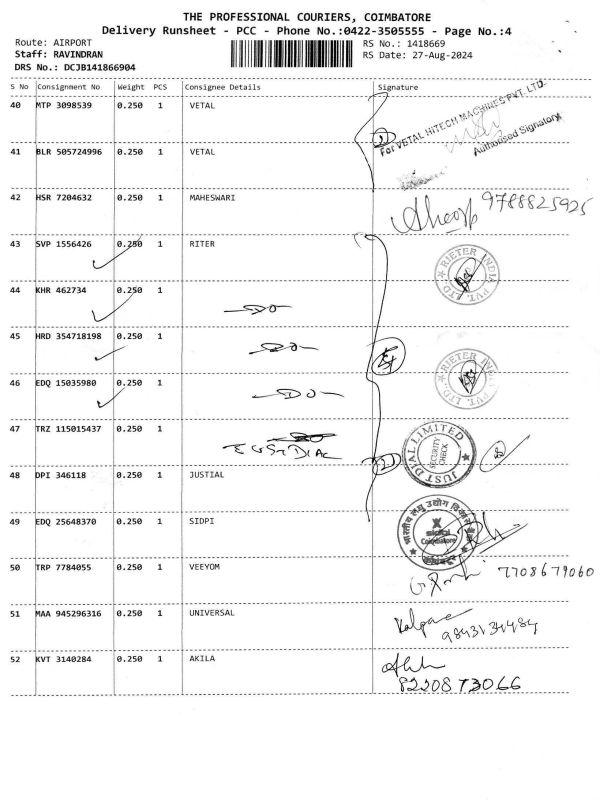 THE PROFESSIONAL COURIERS, COIMBATORE
Delivery Runsheet - PCC - Phone No.:0422-3505555 - Page No.:4
Route: AIRPORT RS No.: 1418669
Staff: RAVINDRAN RS Date: 27-Aug-2024
DRS No.: DCJB141866904
S No Consignment No Weight PCS Consignee Details Signature
40 MTP 3098539 0.250 1 VETAL
For VETAL HITECH MACHINES PVT. LTD.
Authorised Signatory
41 BLR 505724996 0.250 1 VETAL
42 HSR 7204632 0.250 1 MAHESWARI
9788825925
43 SVP 1556426 0.250 1 RITER
RIETER INDIA PVT. LTD.
44 KHR 462734 0.250 1
-DO-
45 HRD 354718198 0.250 1
-DO-
46 EDQ 15035980 0.250 1
-DO-
RIETER INDIA PVT. LTD.
47 TRZ 115015437 0.250 1
JUST DIAL LIMITED
SECURITY CHECK
48 DPI 346118 0.250 1 JUSTIAL
2
49 EDQ 25648370 0.250 1 SIDPI
भारतीय लघु उद्योग विकास
Coimbatore
50 TRP 7784055 0.250 1 VEEYOM
7708679060
51 MAA 945296316 0.250 1 UNIVERSAL
Kalpana
9843134484
52 KVT 3140284 0.250 1 AKILA
8220873066